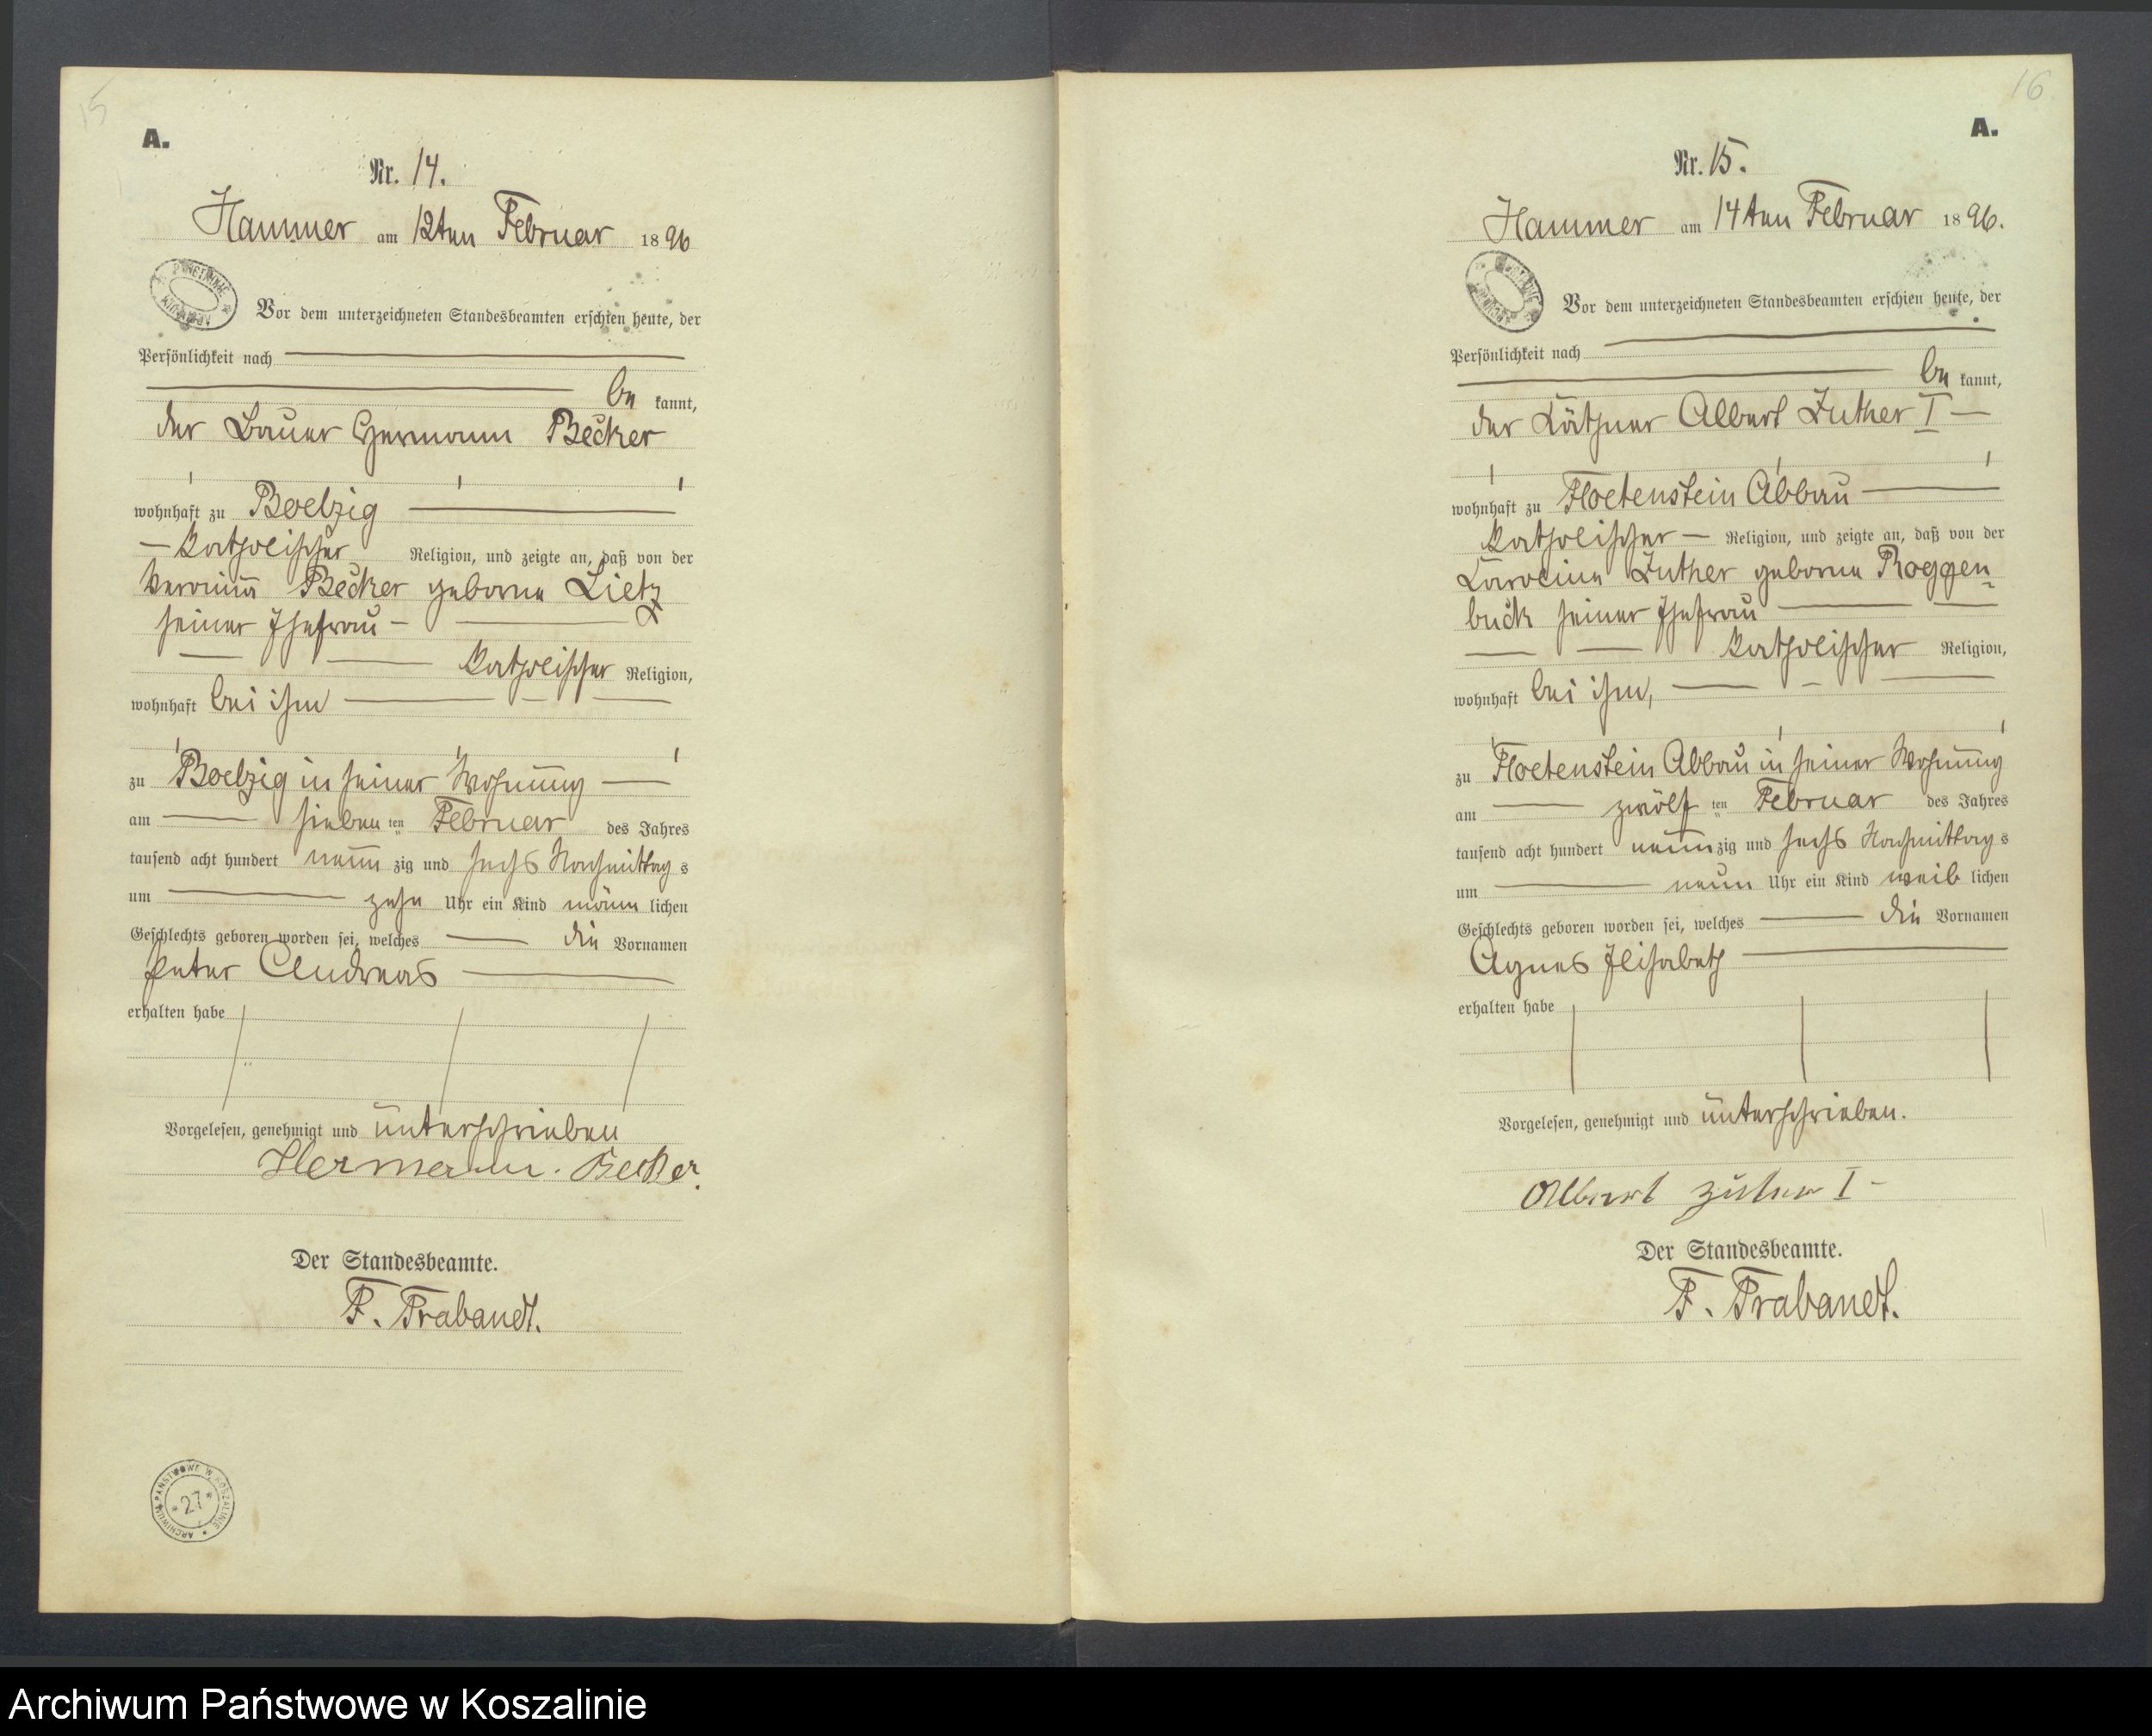 15
A.
Nr. 14.
Hammer am 12ten Februar 1896
Vor dem unterzeichneten Standesbeamten erschien heute, der
Persönlichkeit nach
be kannt,
der Bauer Hermann Becker
wohnhaft zu Boelzig
katholischer Religion, und zeigte an, daß von der
Becker geborne Lietz
seiner Ehefrau
katholischer Religion,
wohnhaft bei ihm
zu Boelzig in seiner Wohnung
am sieben ten Februar des Jahres
tausend acht hundert neun zig und sechs Nachmittag s
um zehn Uhr ein Kind männ lichen
Geschlechts geboren worden sei, welches die Vornamen
Peter Andreas
erhalten habe
Vorgelesen, genehmigt und unterschrieben
Hermann Becker.
Der Standesbeamte.
F. Trabandt.
ARCHIWUM PAŃSTWOWE W KOSZALINIE
27
16
A.
Nr. 15.
Hammer am 14ten Februar 1896.
Vor dem unterzeichneten Standesbeamten erschien heute, der
Persönlichkeit nach
be kannt,
der Käthner Albert Zuther I
wohnhaft zu Floetenstein Abbau
katholischer Religion, und zeigte an, daß von der
Karoline Zuther geborne Roggen
buck seiner Ehefrau
katholischer Religion,
wohnhaft bei ihm,
zu Floetenstein Abbau in seiner Wohnung
am zwölf ten Februar des Jahres
tausend acht hundert neun zig und sechs Nachmittag s
um neun Uhr ein Kind weib lichen
Geschlechts geboren worden sei, welches die Vornamen
Agnes Elisabeth
erhalten habe
Vorgelesen, genehmigt und unterschrieben.
Albert Zuther I
Der Standesbeamte.
F. Trabandt.
Archiwum Państwowe w Koszalinie